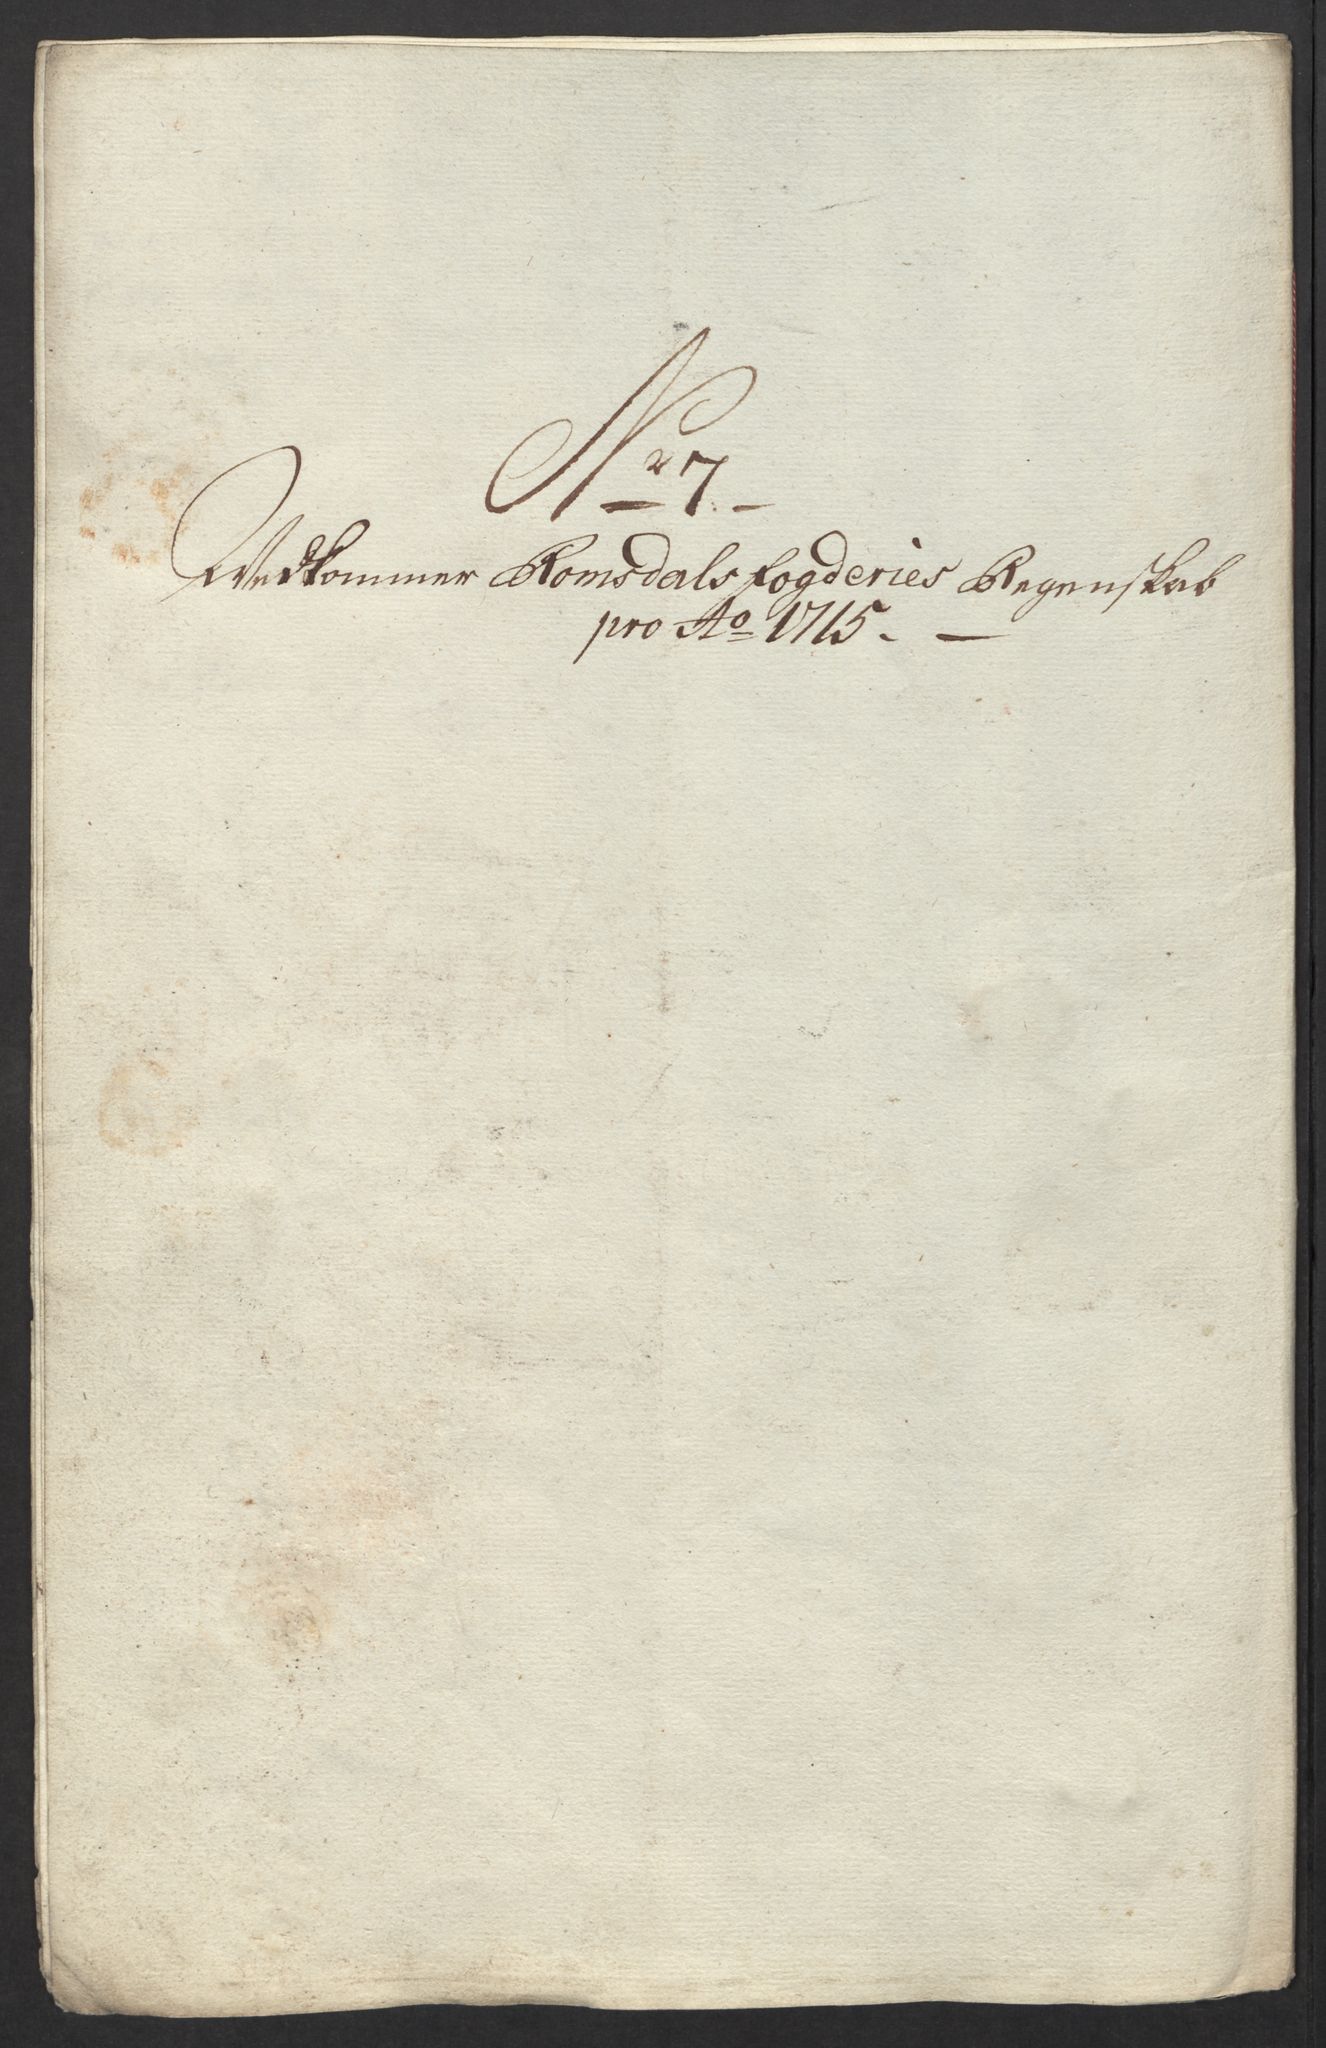 Nr 7.
Vedkommer Romsdals fogderies Regenskab
pro Ao 1715. —